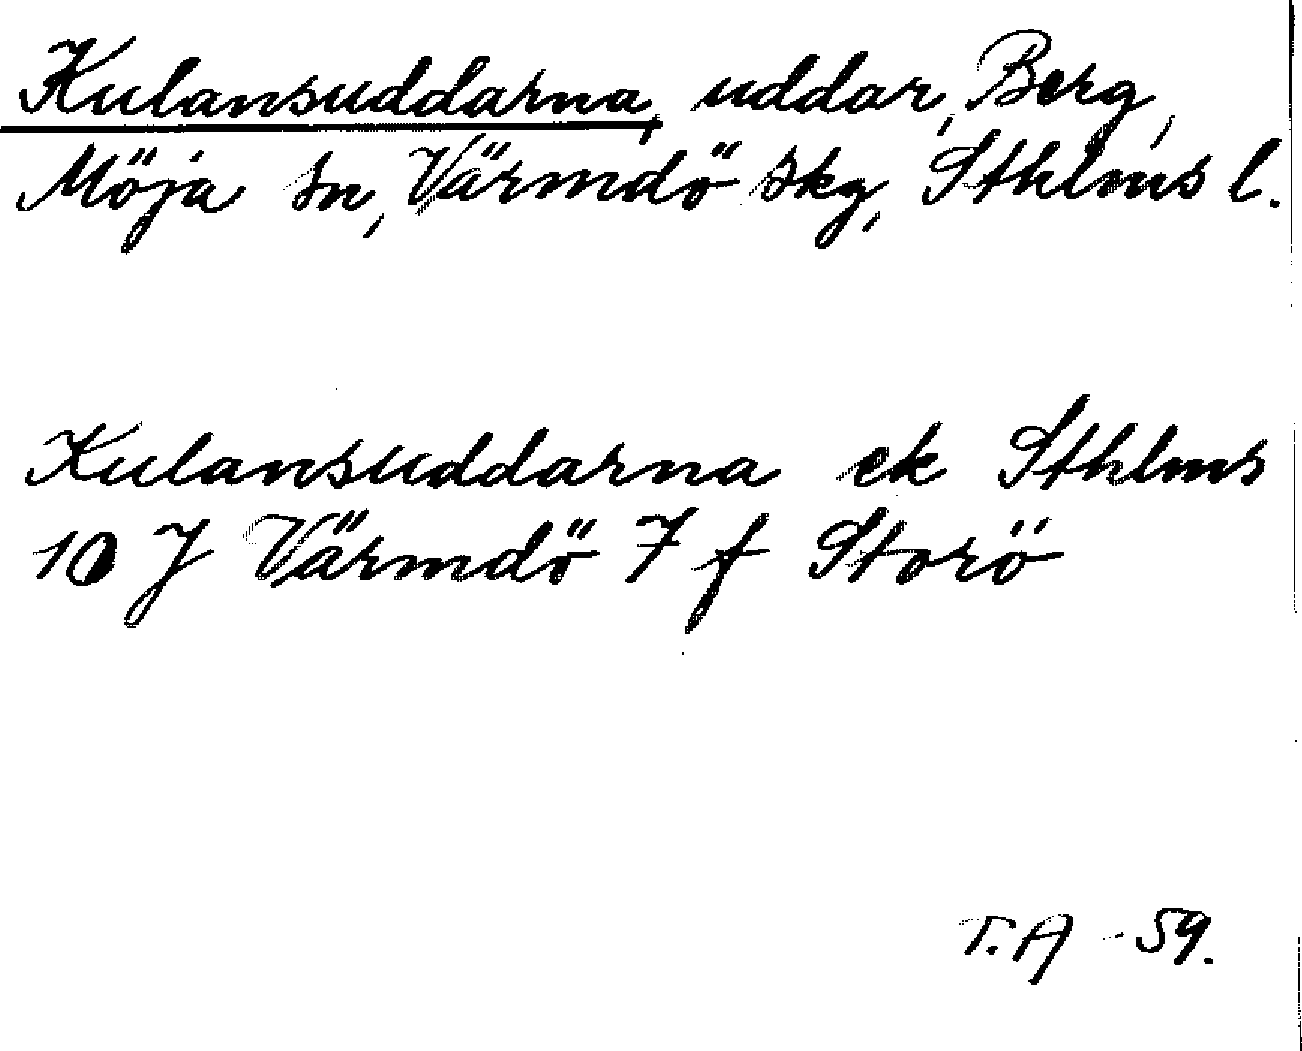 Kulansuddarna, uddar, Berg,
Möja sn, Värmdö skg, Sthlms l.
Kulansuddarna ek Sthlms
10 J Värmdö 7 f Storö
T. A -59.